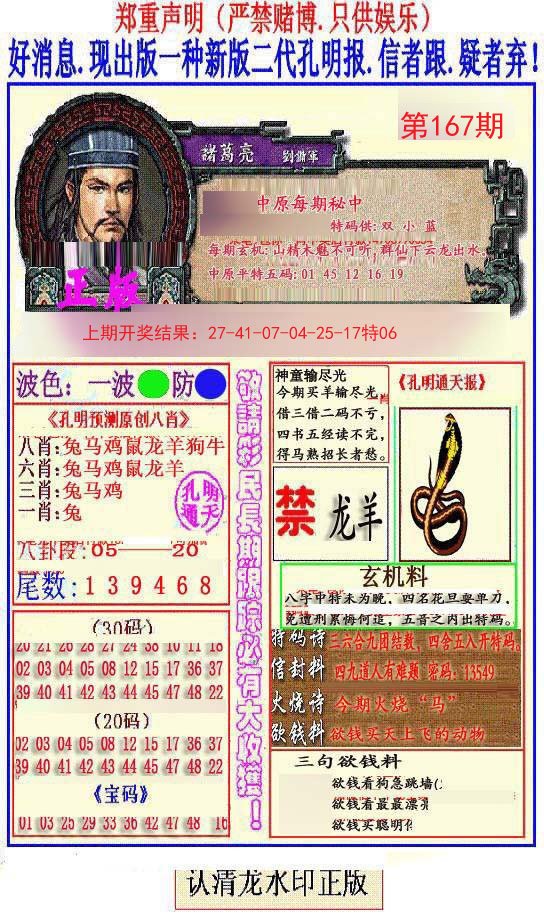 郑重声明（严禁赌博.只供娱乐）
好消息.现出版一种新版二代孔明报.信者跟.疑者弃!
第167期
諸葛亮 劉備軍
中原每期秘中
特码供:双 小 蓝
每期玄机:山精木魅不可听,群仙下云龙出水.
中原平特五码:01 45 12 16 19
正版
上期开奖结果：27-41-07-04-25-17特06
波色：一波 防
《孔明预测原创八肖》
八肖:兔马鸡鼠龙羊狗牛
六肖:兔马鸡鼠龙羊
三肖:兔马鸡
一肖:兔
孔明
通天
八卦段:05——20
尾数:139468
(30码)
20 21 26 28 27 24 38 10 11 18
02 03 04 05 08 12 15 16 37 37
39 40 41 42 43 44 45 47 48 22
(20码)
02 03 04 05 08 12 15 16 36 37
39 40 41 42 43 44 45 47 48 22
《宝码》
01 03 25 29 33 36 42 47 48 16
敬請彩民長期跟踪必有大收獲！
神童输尽光
今期买羊输尽光
借三借二码不亏,
四书五经读不完,
得马熟招长者愁。
《孔明通天报》
禁 龙羊
玄机料
八字中特未为晚，四名花旦耍单刀，
免遭刑累悔何追，五音之内出特码。
特码诗 三六合九团结数，四舍五入开特码。
信封料 四九道人有难题 密码：13549
火烧诗 今期火烧“马”
欲钱料 欲钱买天上飞的动物
三句欲钱料
欲钱看狗急跳墙
欲钱看最最漂
欲钱买聪明
认清龙水印正版